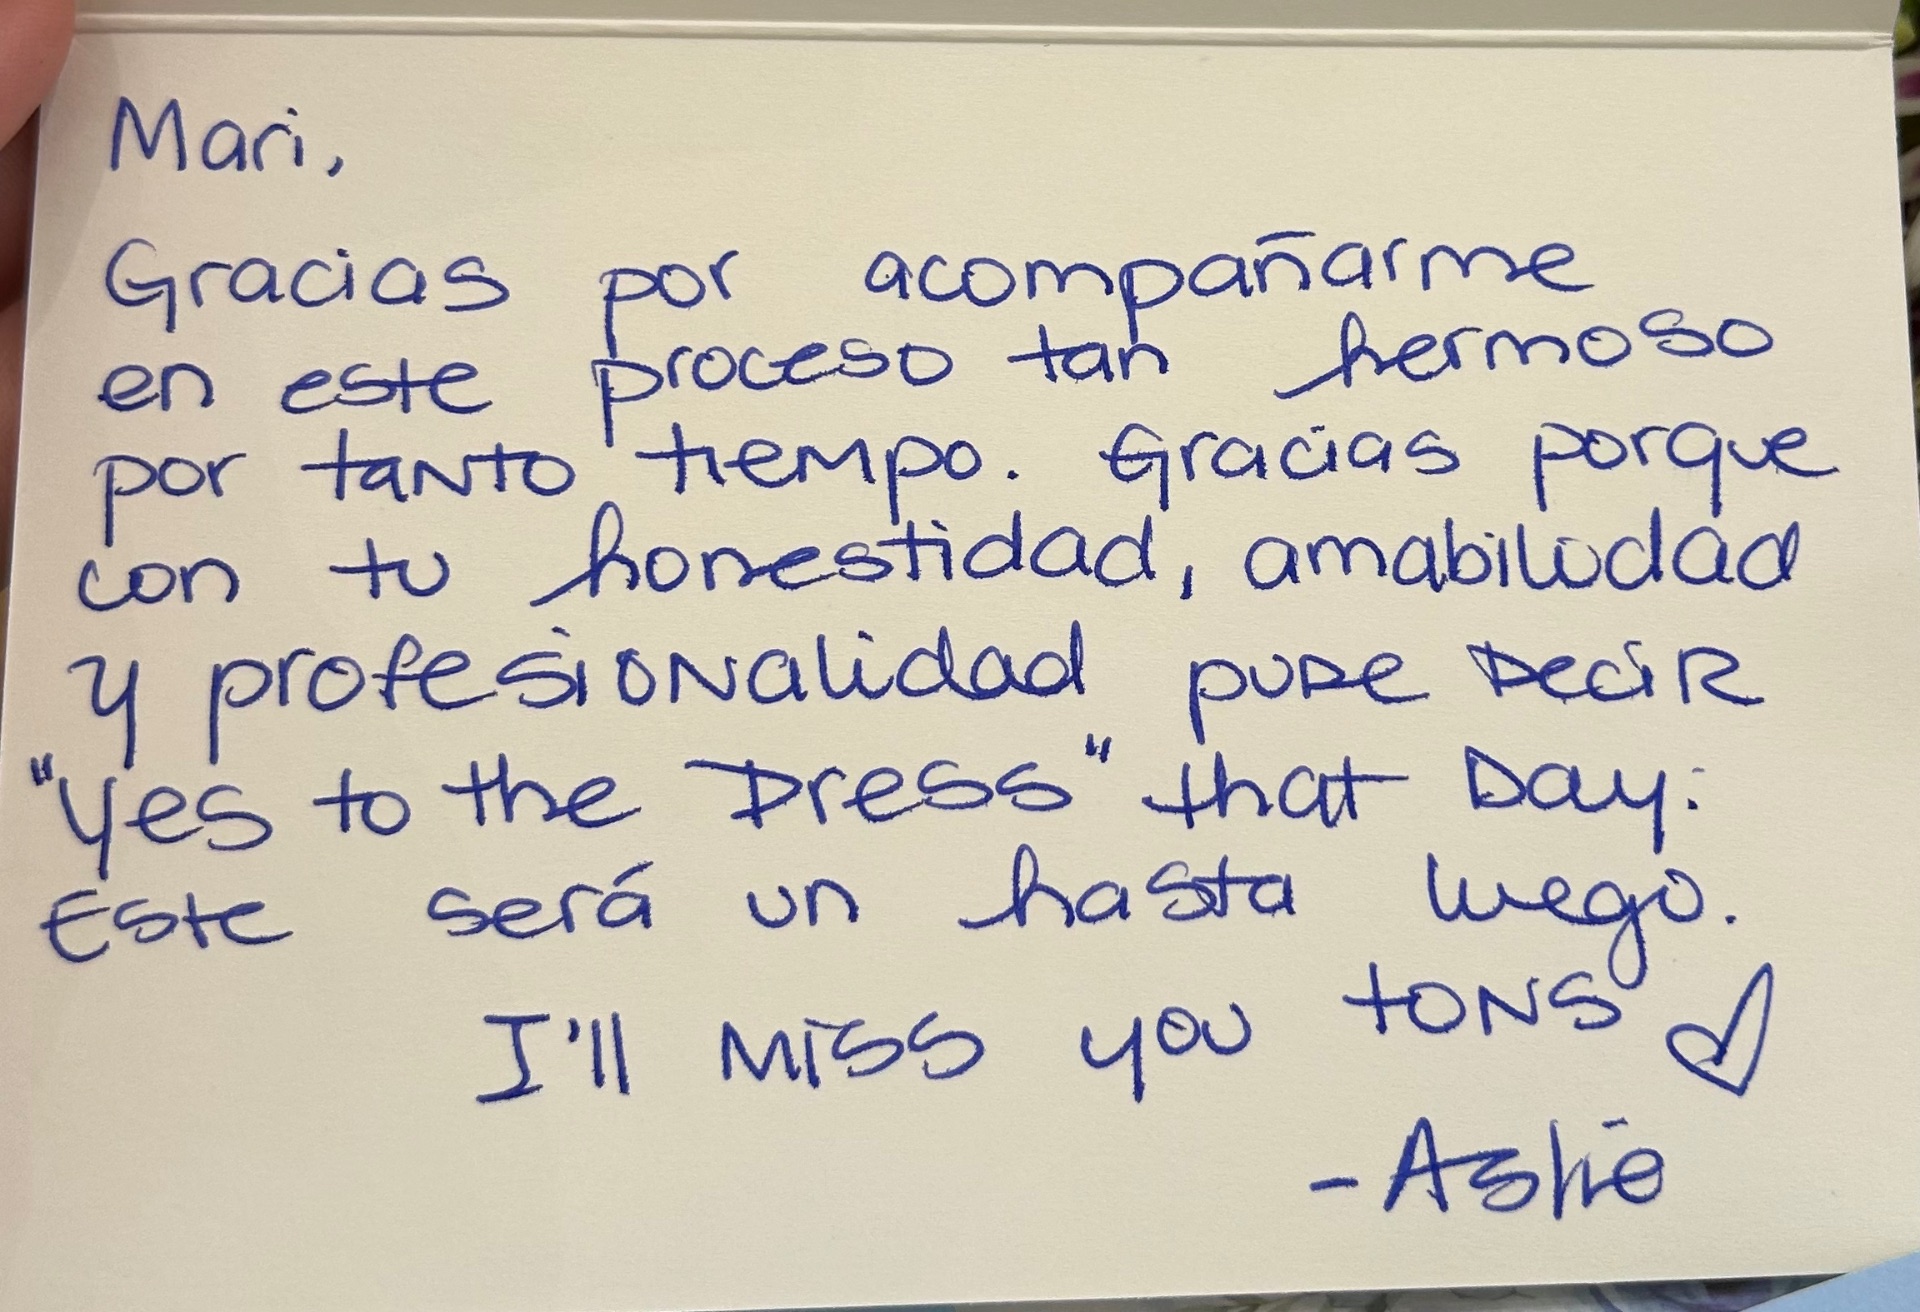 Mari,
Gracias por acompañarme
en este proceso tan hermoso
por tanto tiempo. Gracias porque
con tu honestidad, amabilidad
y profesionalidad pude decir
"yes to the Dress" that Day.
Este será un hasta luego.
I'll miss you tons ♡
- Aslie